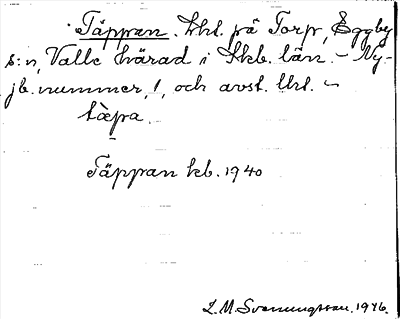 Täppan. Lht. på Torp, Eggby
s:n, Valle härad i Skb. län. – Ny-
jb. nummer, !, och avst. Uttl. –
tàpa.
Täppan kb. 1940
L.M. Svanungsson. 1946.